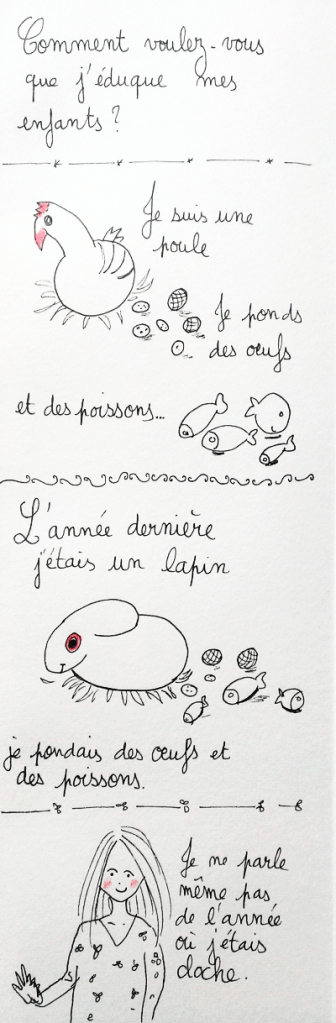 Comment voulez-vous
que j'éduque mes
enfants ?
Je suis une
poule
Je ponds
des œufs
et des poissons...
L'année dernière
j'étais un lapin
je pondais des œufs et
des poissons.
Je ne parle
même pas
de l'année
où j'étais
cloche.